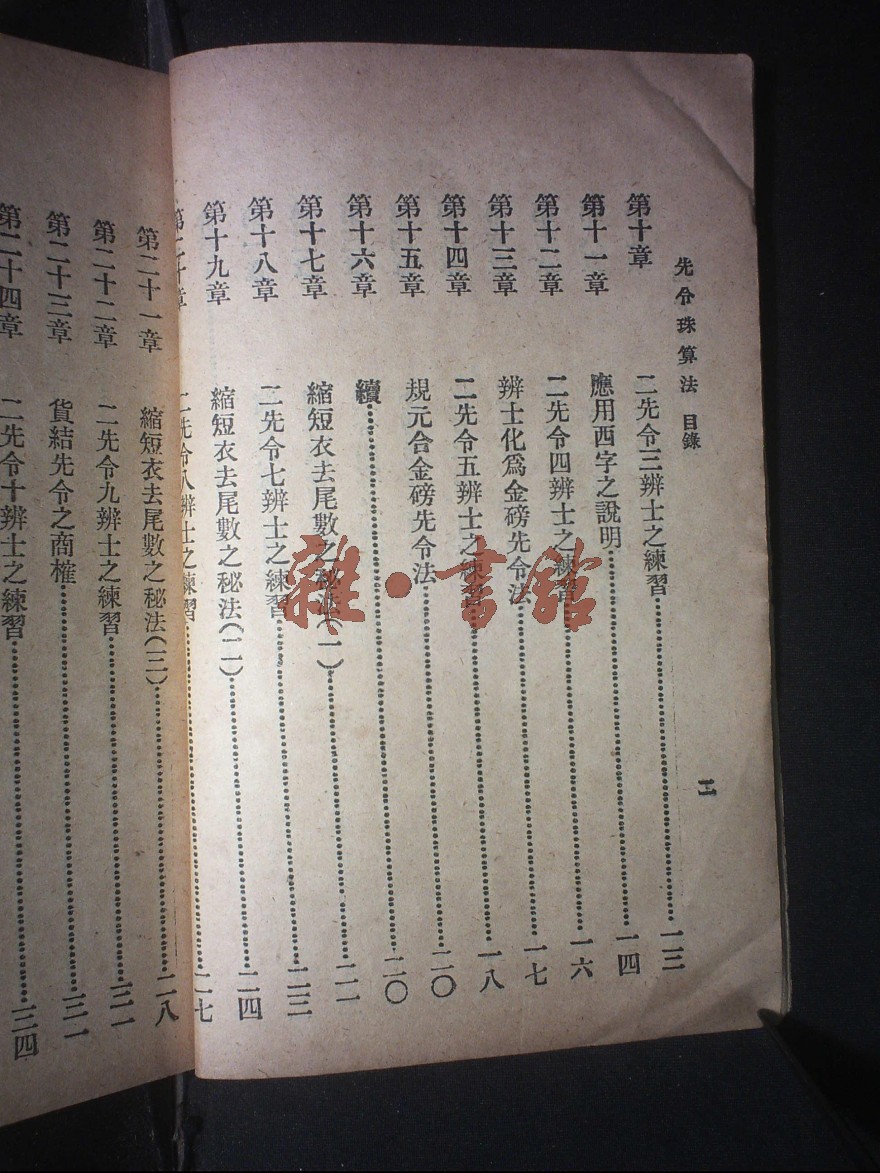 先令珠算法 目錄
二
第十章 二先令三辨士之練習 一三
第十一章 應用西字之說明 一四
第十二章 二先令四辨士之練習 一六
第十三章 辨士化爲金磅先令法 一七
第十四章 二先令五辨士之練習 一八
第十五章 規元合金磅先令法 二〇
第十六章 續 二〇
第十七章 縮短衣去尾數之秘法(一)
第十八章 二先令七辨士之練習
第十九章 縮短衣去尾數之秘法(二) 二四
第二十章 二先令八辨士之練習 二七
第二十一章 縮短衣去尾數之秘法(三) 二八
第二十二章 二先令九辨士之練習
第二十三章 貨結先令之商榷
第二十四章 二先令十辨士之練習 三四
雜·書館